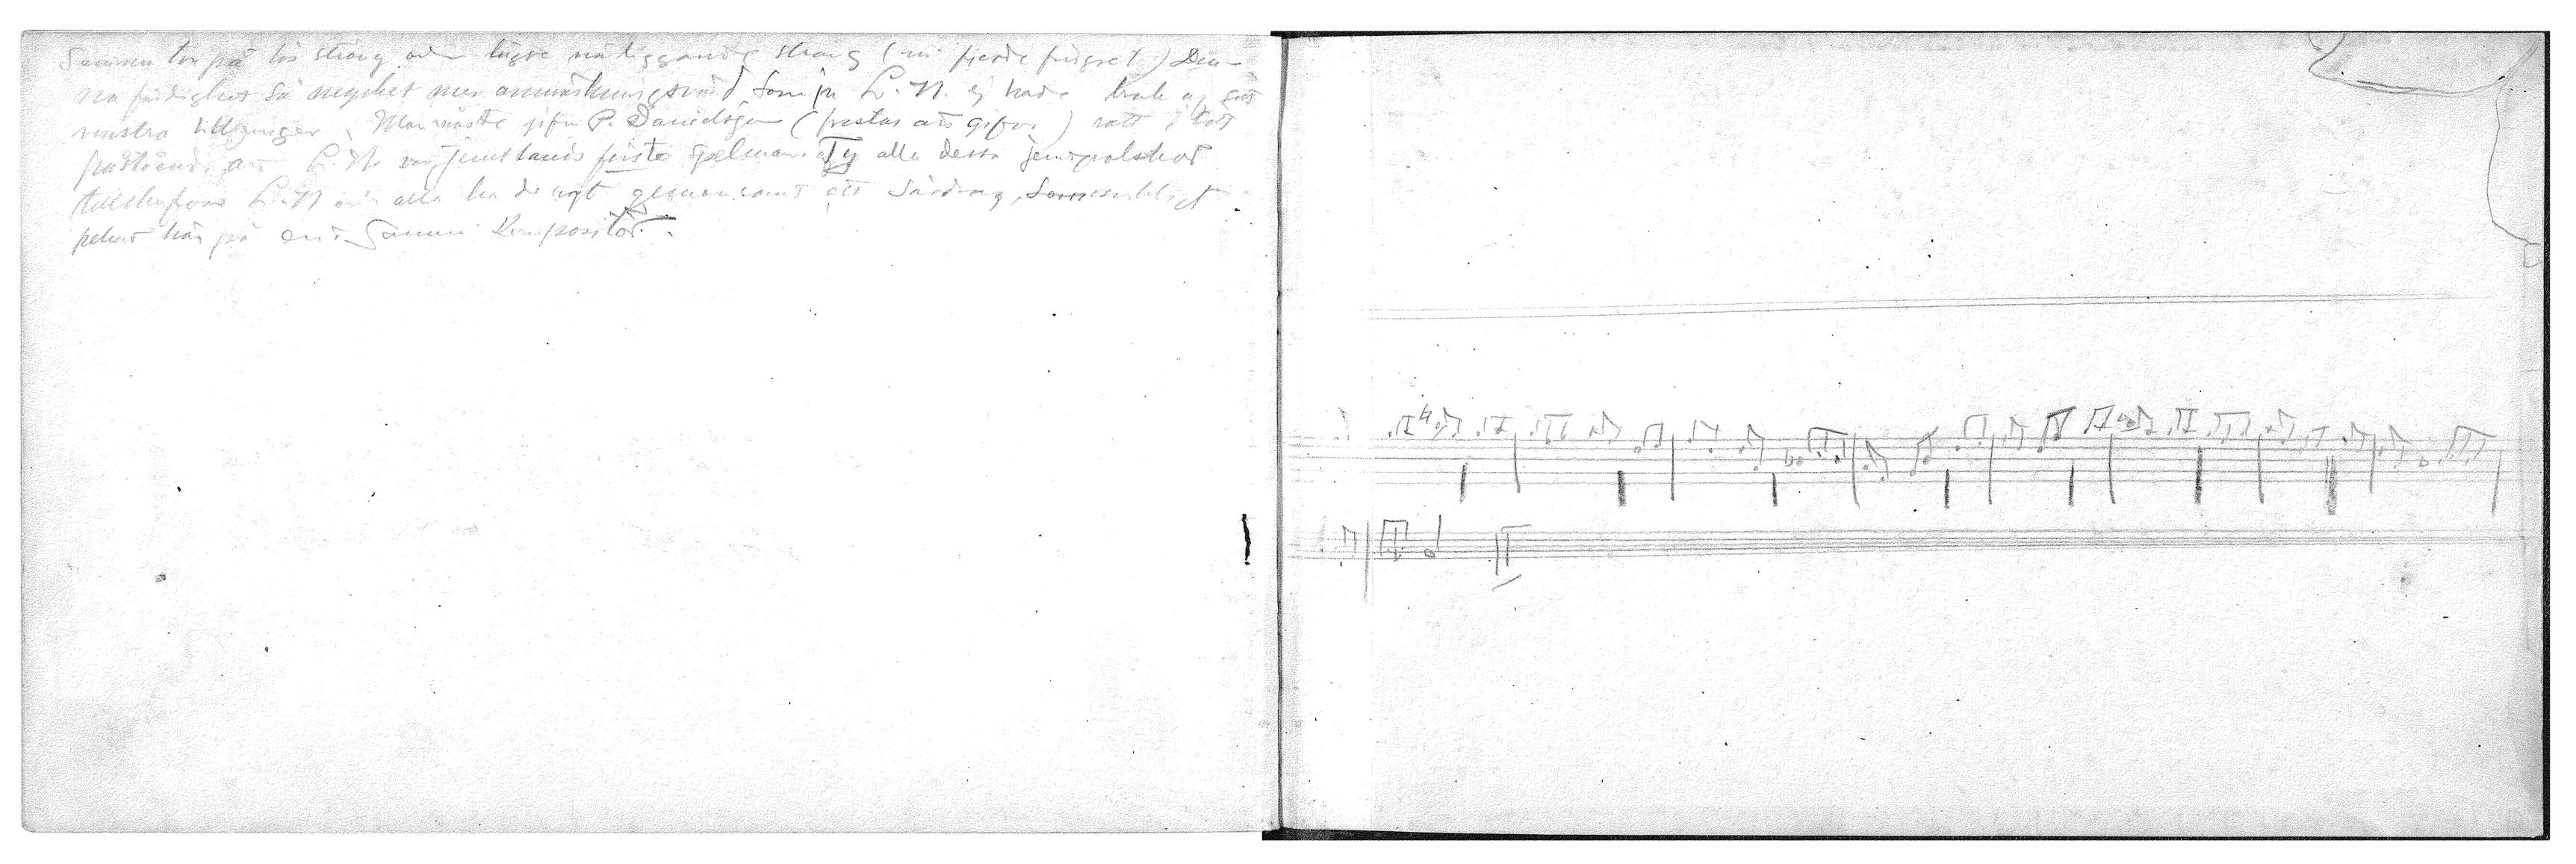 Samma ton på lös sträng och lägre närliggande sträng (m. fjerde fingret) Den-
na färdighet så mycket mer anmärkningsvärd som ju L. N. ej hade bruk af sitt
venstra lillfinger. Man måste gifva P. Danielsson ( ) rätt i
påstående att L. N. var Jemtlands första spelman. Ty alla dessa jemtpolskor
tillskrifvas L. N och alla ha de ngt gemensamt ett särdrag, som
pekar här på en o. samma kompositör.